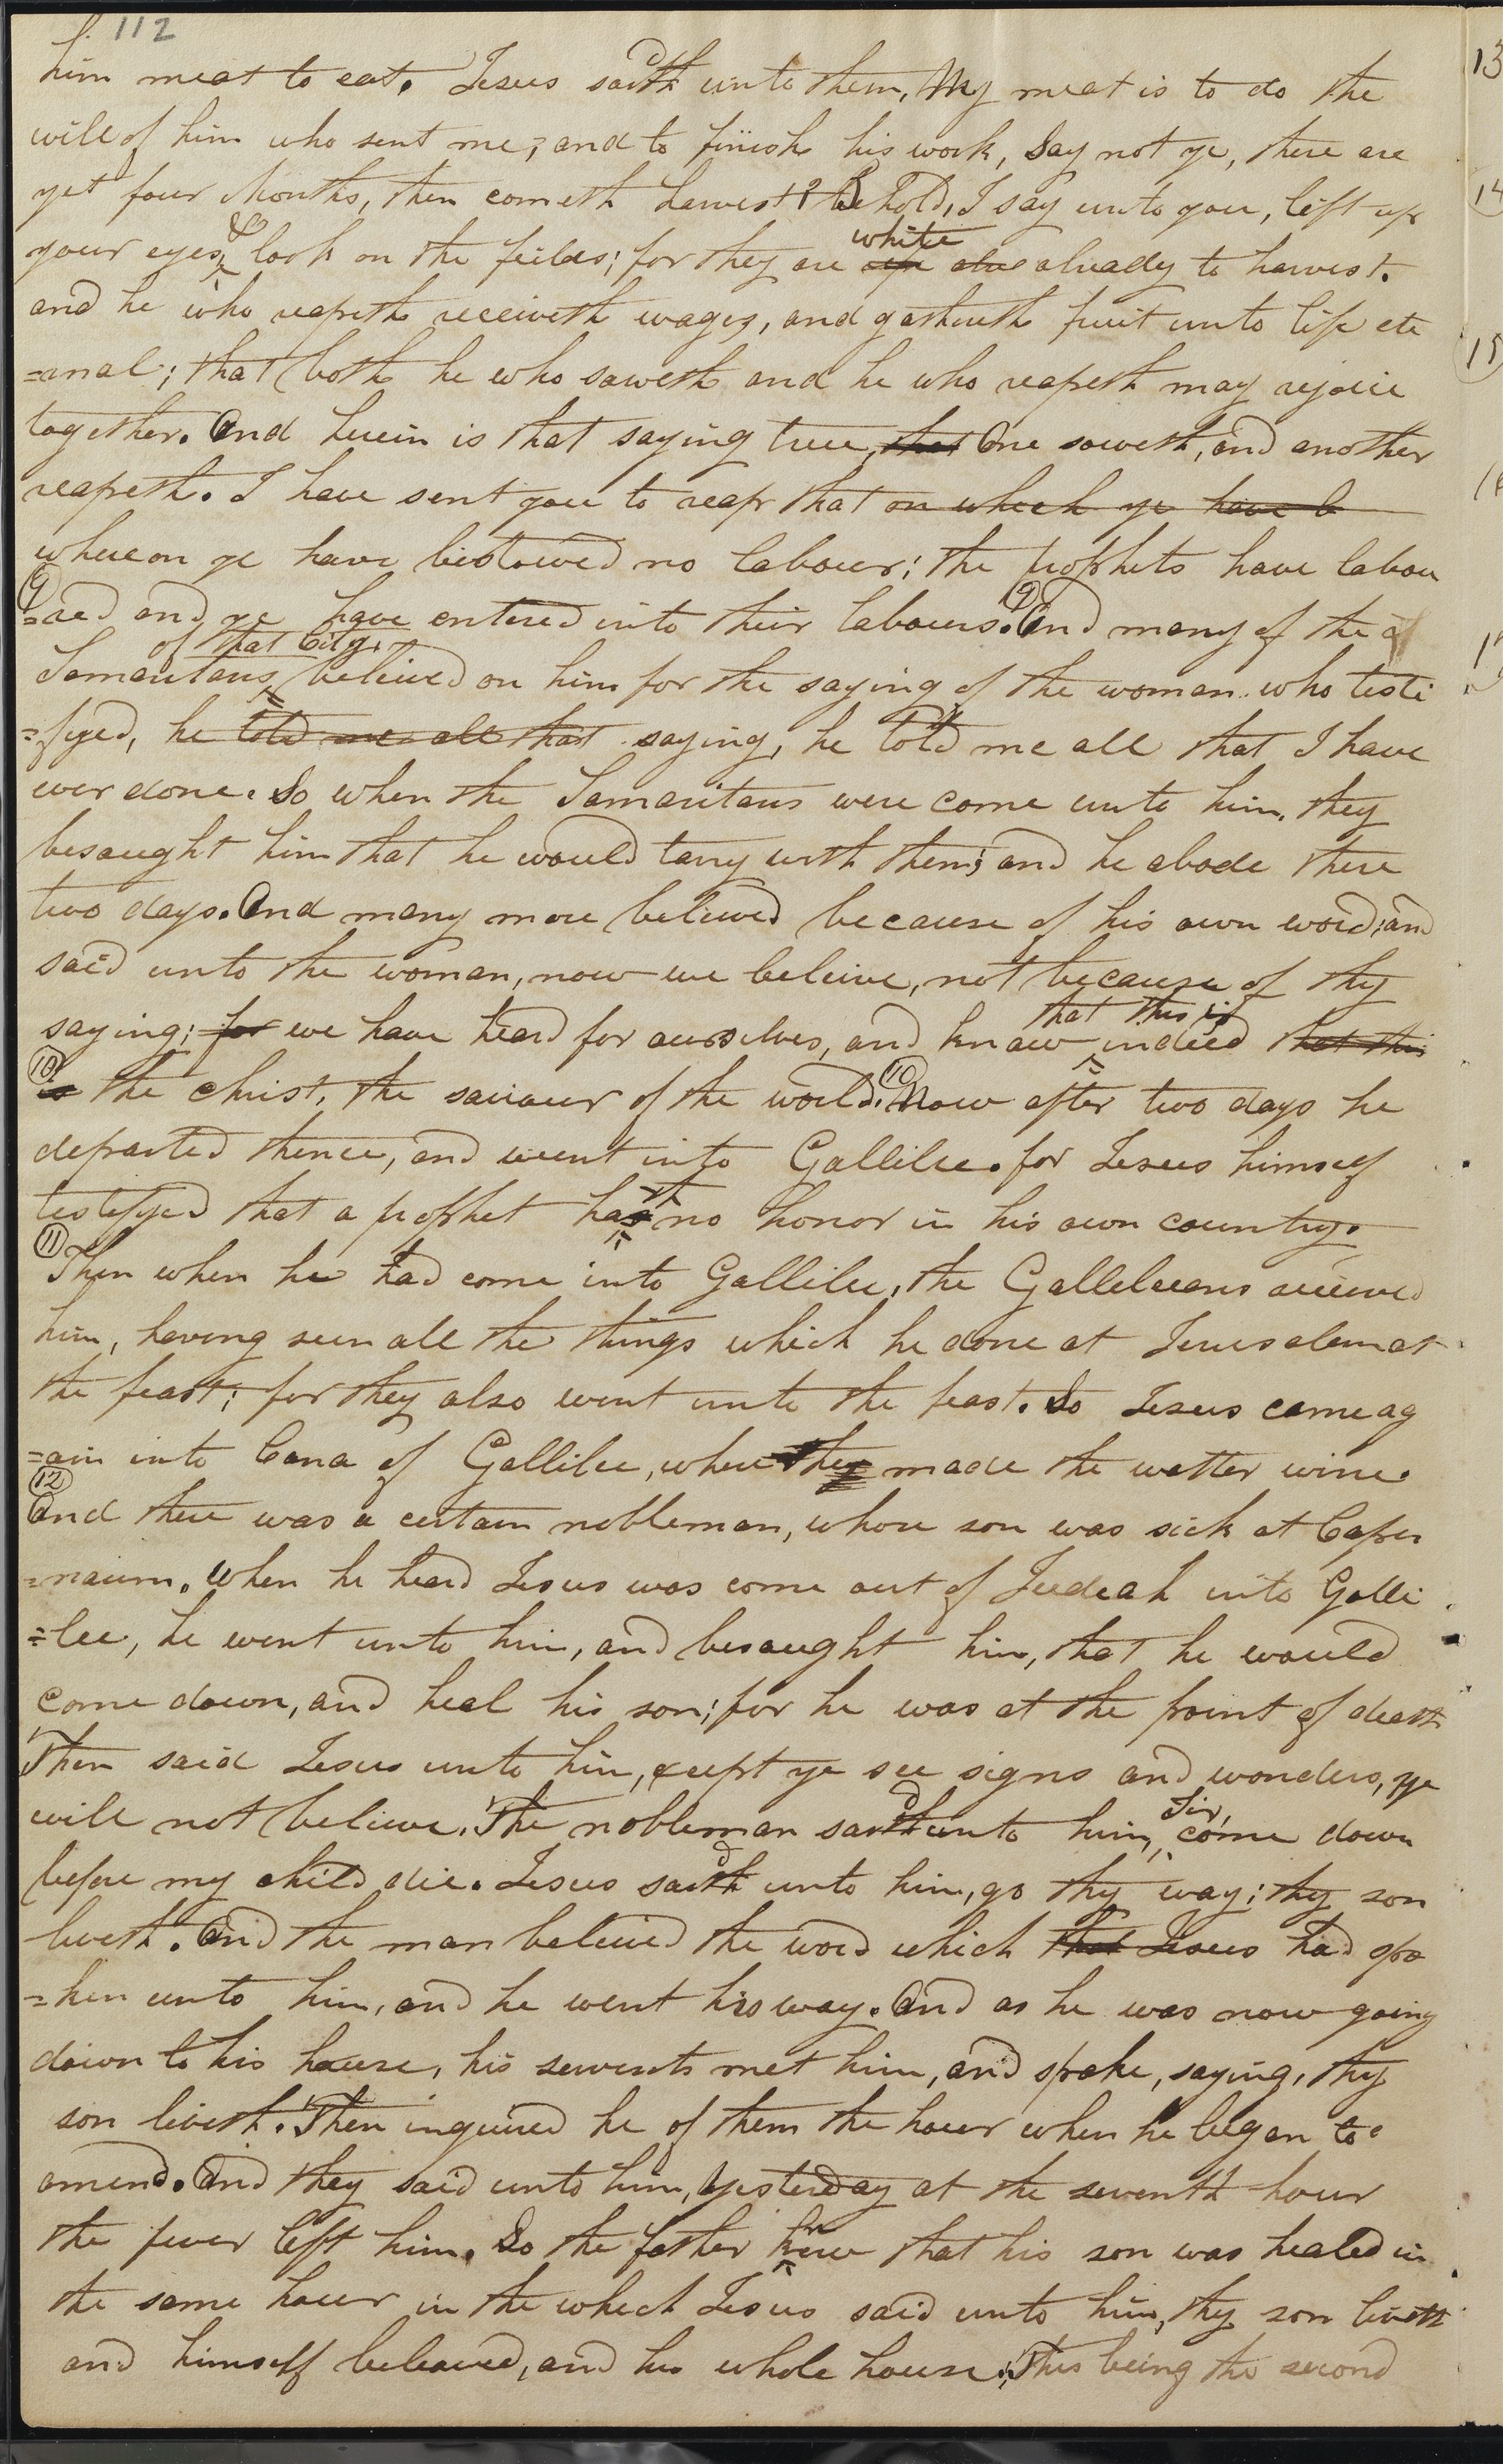 112
him meat to eat. Jesus said unto them, My meat is to do the
will of him who sent me, and to finish his work, Say not ye, there are
yet four Months, then cometh harvest? Behold, I say unto you, lift up
your eyes, & look on the feilds; for they are ripe alre white already to harvest.
and he who reapeth receiveth wages, and gathereth fruit unto life ete
=anal; that both he who soweth and he who reapeth may rejoice
together. And herein is that saying true, that One soweth, and another
reapeth. I have sent you to reap that on which ye have b
whereon ye have bestowed no labour; the prophets have labou
=red and ye have entered into their labours. (9) And many of the
Samaritans of that City, believed on him for the saying of the woman who testi
=fyed, he told me all that saying, he told me all that I have
ever done. So when the Samaritans were come unto him, they
besaught him that he would tarry with them; and he abode there
two days. And many more believed because of his own word; and
said unto the woman, now we beleive, not because of thy
saying; for we have heard for ourselves, and know that this is indeed that this
(10) is the christ, the saviour of the world. (10) Now after two days he
departed thence, and went into Gallilee. for Jesus himself
testefyed that a prophet hath no honor in his own country.
(11) Then when he had come into Gallilee, the Galleleeans received
him, having seen all the things which he done at Jerusalem at
the feast; for they also went unto the feast. So Jesus came ag
=ain into Cana of Gallilee, where they made the watter wine.
(12)
And there was a certain nobleman, whose son was sick at Caper
=naum. When he heard Jesus was come out of Judeah into Galli
=lee, he went unto him, and besaught him, that he would
come down, and heal his son; for he was at the point of death
Then said Jesus unto him, except ye see signs and wonders, ye
will not believe. The nobleman said unto him, Sir, come down
before my child die. Jesus said unto him, go thy way; thy son
liveth. And the man believed the word which that Jesus had spo
=ken unto him, and he went his way. And as he was now going
down to his house, his servents met him, and spoke, saying, thy
son liveth. Then inquired he of them the hour when he began to
amend. And they said unto him, Yesterday at the seventh hour
the fever left him. So the father knew that his son was healed in
the same hour in the which Jesus said unto him, thy son liveth
and himself beleaved, and his whole house; This being the second
13
14
15